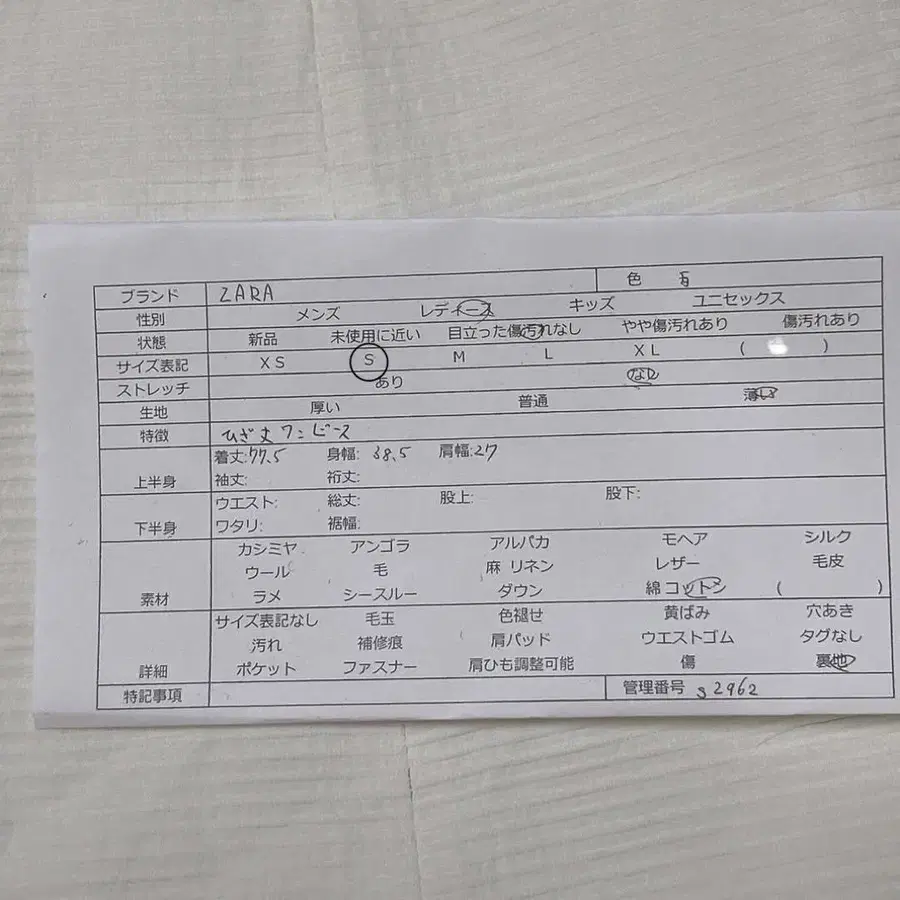 ブランド ZARA 色
性別 メンズ レディース キッズ ユニセックス
状態 新品 未使用に近い 目立った傷汚れなし やや傷汚れあり 傷汚れあり
サイズ表記 XS S M L XL ( )
ストレッチ あり なし
生地 厚い 普通 薄い
特徴 ひざ丈ワンピース
上半身 着丈:77.5 身幅: 38.5 肩幅:27
袖丈: 裄丈:
下半身 ウエスト: 総丈: 股上: 股下:
ワタリ: 裾幅:
素材 カシミヤ アンゴラ アルパカ モヘア シルク
ウール 毛 麻 リネン レザー 毛皮
ラメ シースルー ダウン 綿 コットン ( )
詳細 サイズ表記なし 毛玉 色褪せ 黄ばみ 穴あき
汚れ 補修痕 肩パッド ウエストゴム タグなし
ポケット ファスナー 肩ひも調整可能 傷 裏地
特記事項 管理番号 s2962